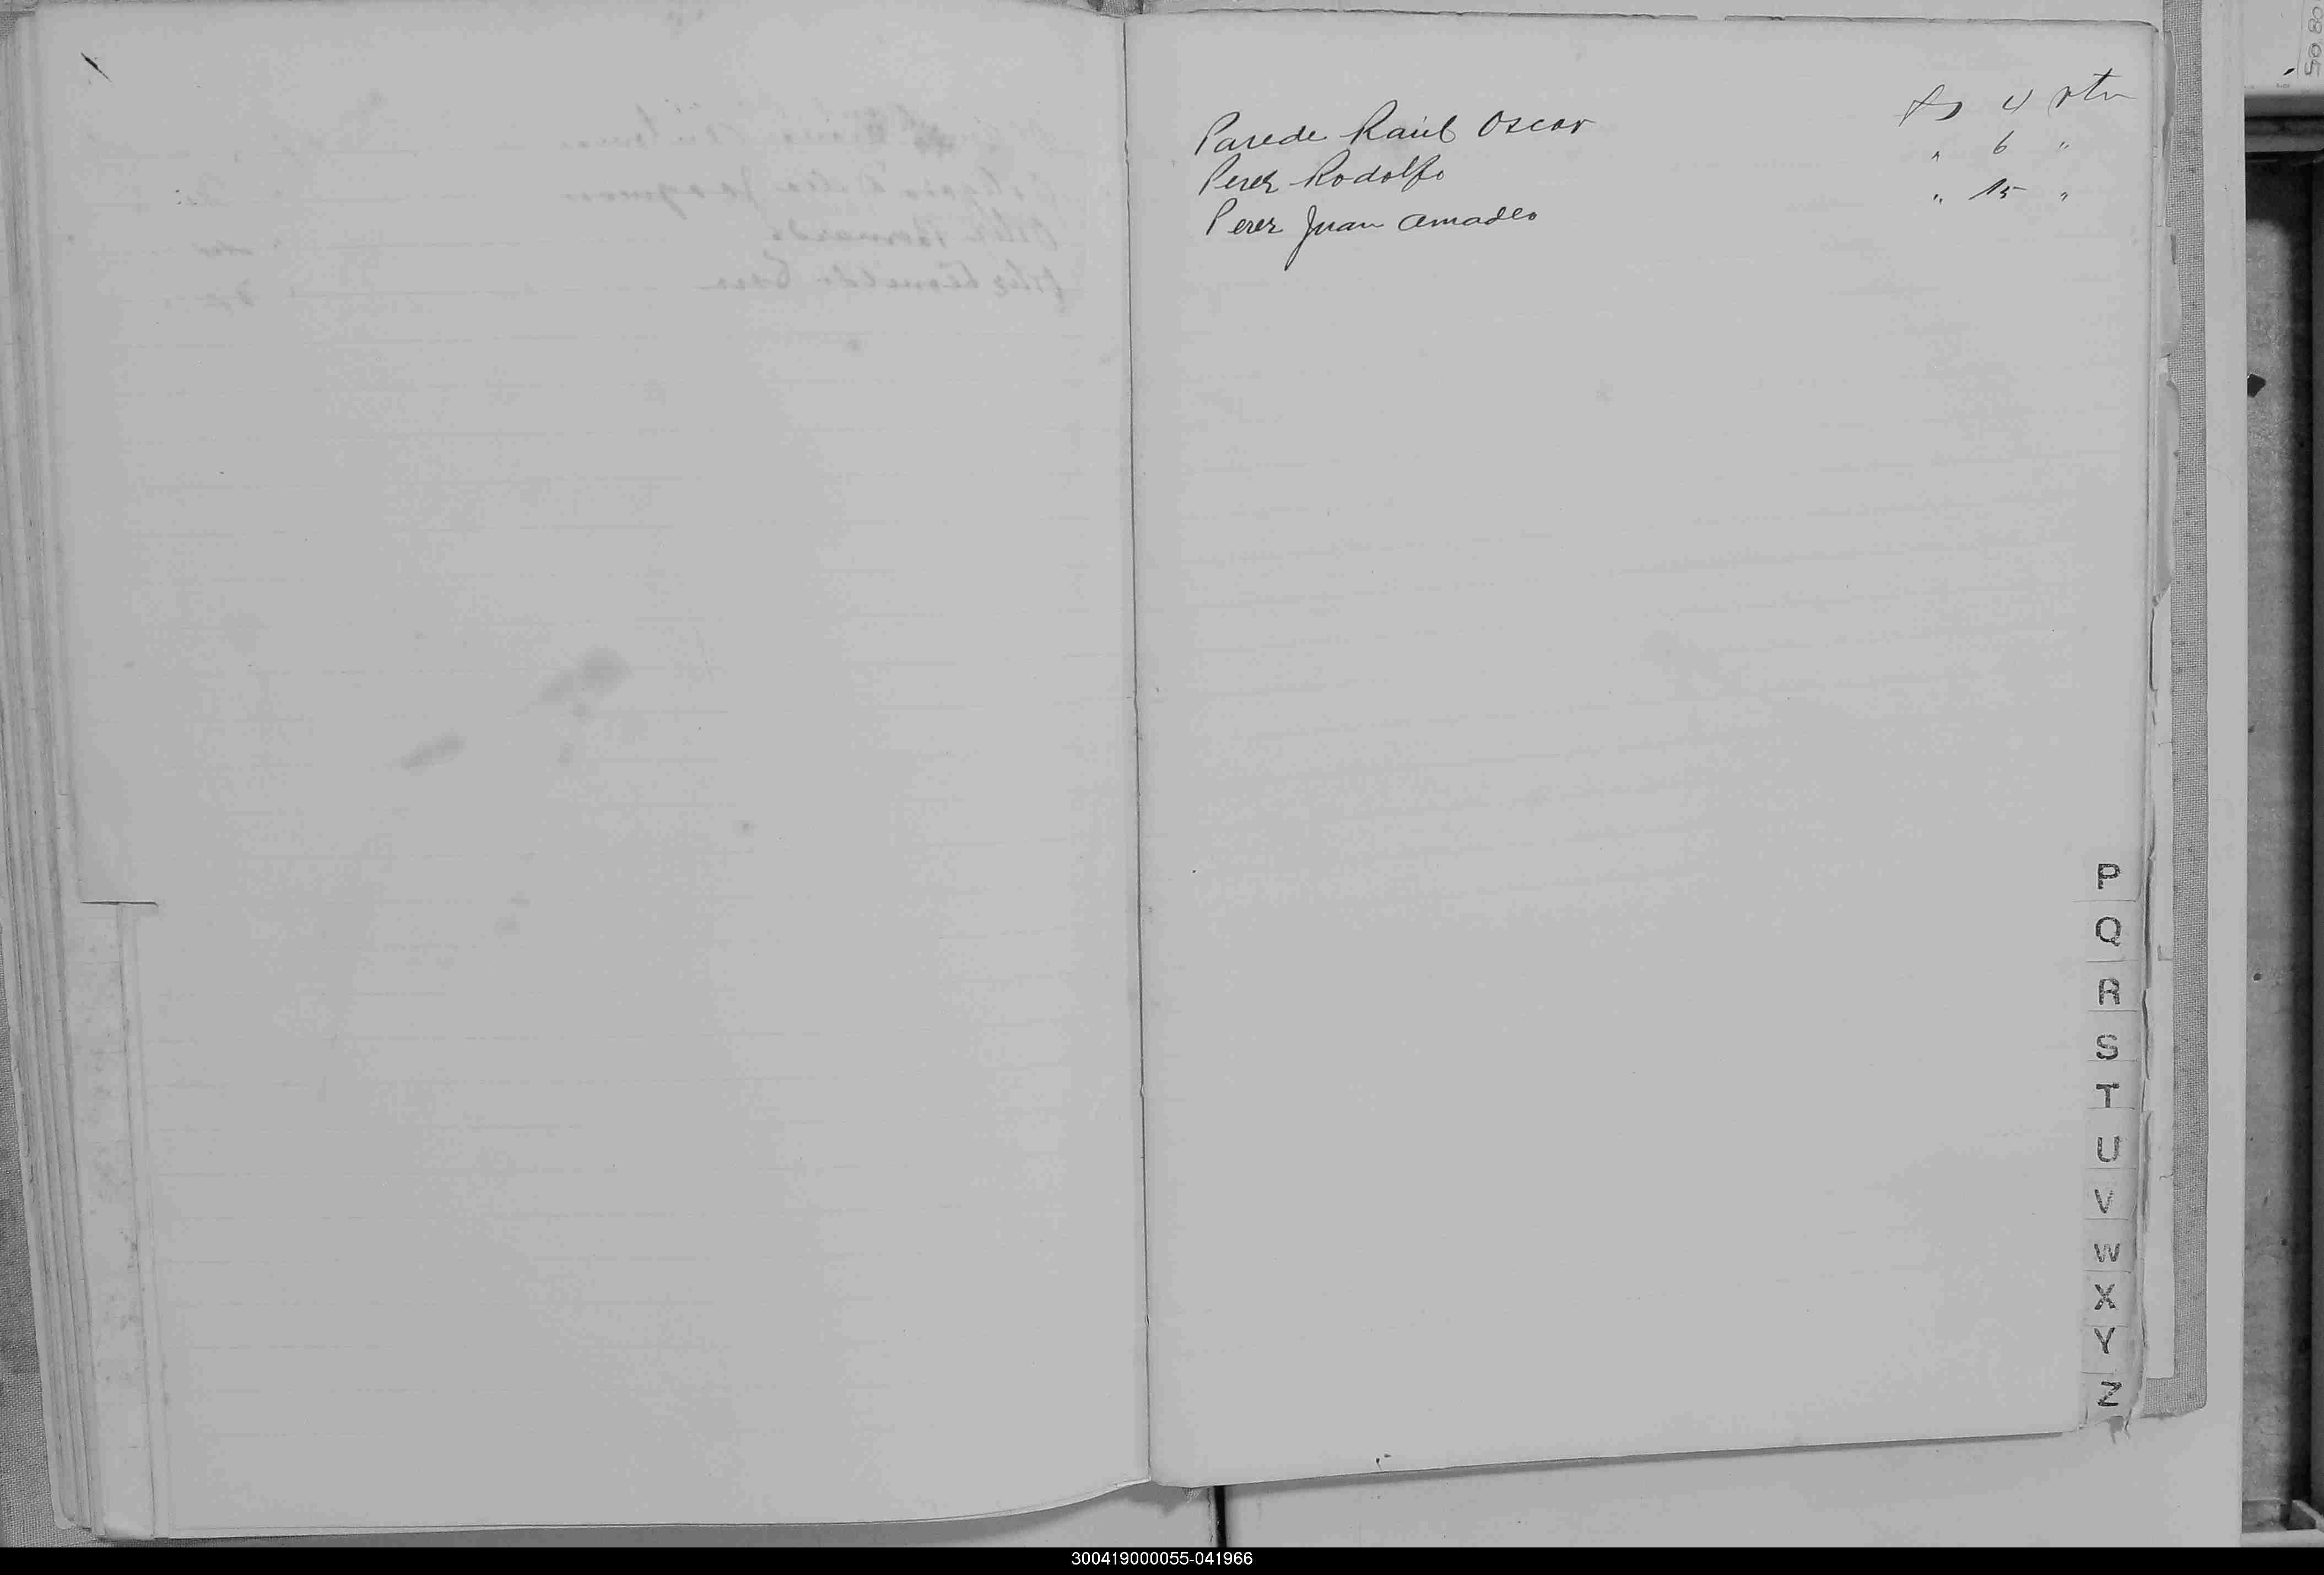 Parede Raúl Oscar fs 4 vta
Perez Rodolfo " 6 "
Perez Juan Amadeo " 15 "
P
Q
R
S
T
U
V
W
X
Y
Z
300419000055-041966